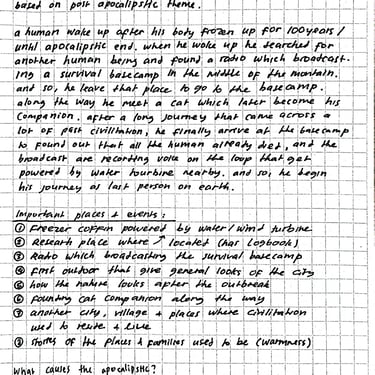 based on post apocalipstic theme.
a human wake up after his body frozen up for 100 years/
until apocalipstic end. when he woke up he searched for
another human being and found a radio which broadcast.
ing a survival basecamp in the middle of the mountain.
and so, he leave that place to go to the basecamp.
along the way he meet a cat which later become his
companion. after a long journey that came across a
lot of past civilitation, he finally arrive at the basecamp
to found out that all the human already diet, and the
broadcast are recording voice on the loop that get
powered by water tourbine nearby. and so, he begin
his journey as last person on earth.
Important places + events :
① Freezer coffin powered by water/wind turbine
② Researh place where ↗ located (has logbook)
③ Radio which broadcasting the survival basecamp
④ First outdoor that give general looks of the city
⑤ how the nature looks after the outbreak
⑥ founding cat companion along the way
⑦ another city, village + places where civilitation
used to reside + live
⑧ stories of the places + families used to be (warmness)
What causes the apocalipstic?